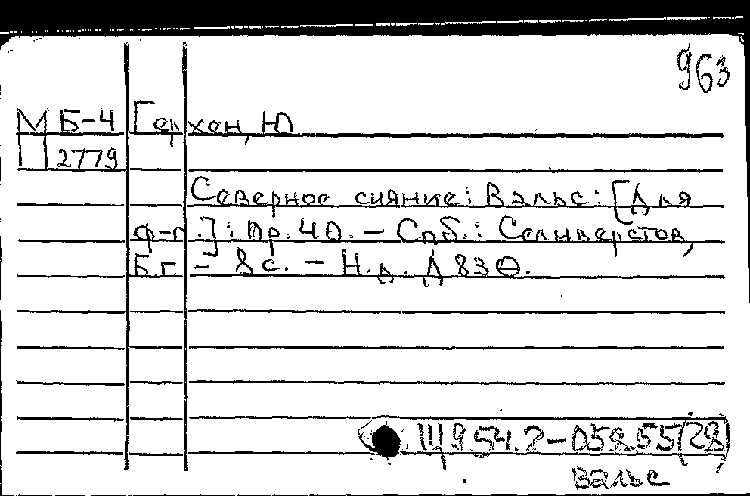 963
М Б-4 Герхен, Ю
П 2779
Северное сияние: Вальс: [Для
ф-п.]: Ор. 40. – Спб.: Селиверстов,
Б.г – 8 с. – Н.д. Д 83 Ѳ.
Щ954.2-058.55(28)
Вальс